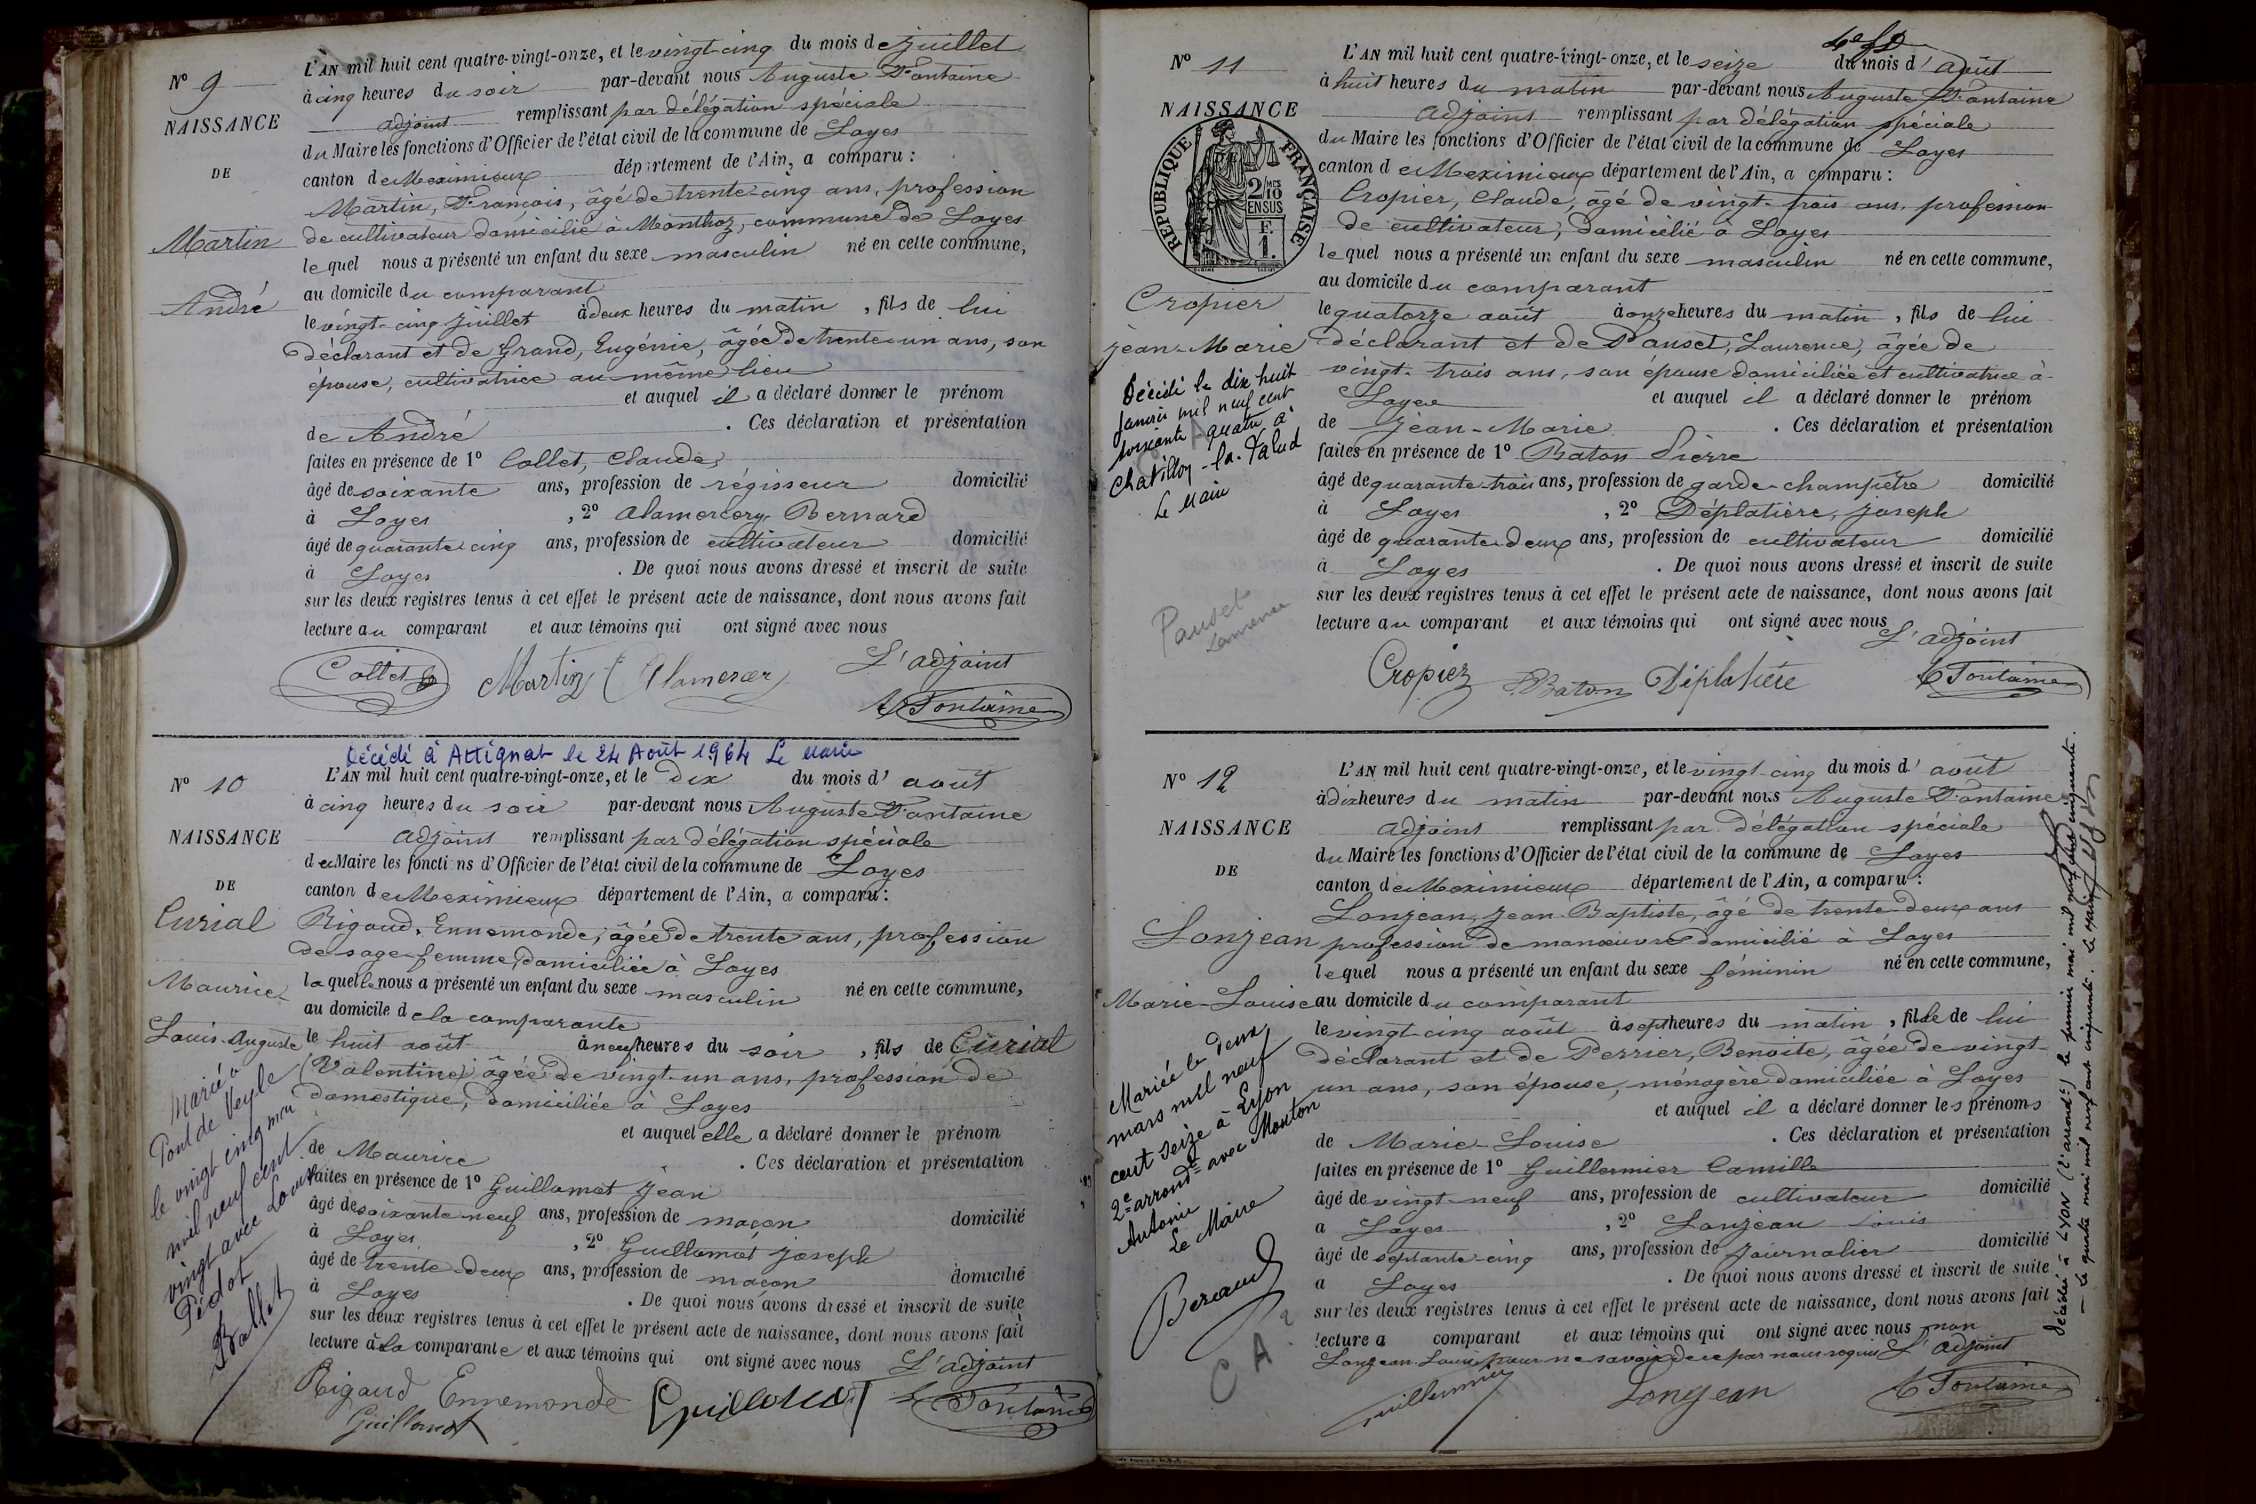 N° 9
NAISSANCE
DE
Martin
André
L'AN mil huit cent quatre-vingt-onze, et le vingt-cinq du mois de Juillet
à cinq heures du soir par-devant nous Auguste Fontaine
adjoint remplissant par délégation spéciale
du Maire les fonctions d'Officier de l'état civil de la commune de Loyes
canton de Meximieux département de l'Ain, a comparu :
Martin, François, âgé de trente-cinq ans, profession
de cultivateur domicilié à Monthoz, commune de Loyes
lequel nous a présenté un enfant du sexe masculin né en cette commune,
au domicile du comparant
le vingt-cinq Juillet à deux heures du matin, fils de lui
déclarant et de Grand, Eugénie, âgée de trente-un ans, son
épouse, cultivatrice au même lieu
et auquel il a déclaré donner le prénom
de André . Ces déclaration et présentation
faites en présence de 1° Collet, Claude,
âgé de soixante ans, profession de régisseur domicilié
à Loyes , 2° Alamercery Bernard
âgé de quarante cinq ans, profession de cultivateur domicilié
à Loyes . De quoi nous avons dressé et inscrit de suite
sur les deux registres tenus à cet effet le présent acte de naissance, dont nous avons fait
lecture au comparant et aux témoins qui ont signé avec nous
L'adjoint
Collet Martin Alamercery
A Fontaine
Décédé à Attignat le 24 Août 1964 Le Maire
N° 10
NAISSANCE
DE
Curial
Maurice
Louis-Auguste
Marié à
Pont de Veyle
le vingt cinq mai
mil neuf cent
vingt avec Louise
Pédot
Ballet
L'AN mil huit cent quatre-vingt-onze, et le dix du mois d'août
à cinq heures du soir par-devant nous Auguste Fontaine
adjoint remplissant par délégation spéciale
du Maire les fonctions d'Officier de l'état civil de la commune de Loyes
canton de Meximieux département de l'Ain, a comparu :
Rigaud, Ennemonde, âgée de trente ans, profession
de sage-femme, domiciliée à Loyes
laquelle nous a présenté un enfant du sexe masculin né en cette commune,
au domicile de la comparante
le huit août à neuf heures du soir, fils de Curial
(Valentine) âgée de vingt-un ans, profession de
domestique, domiciliée à Loyes
et auquel elle a déclaré donner le prénom
de Maurice . Ces déclaration et présentation
faites en présence de 1° Guillamot Jean
âgé de soixante neuf ans, profession de maçon domicilié
à Loyes , 2° Guillamot Joseph
âgé de trente-deux ans, profession de maçon domicilié
à Loyes . De quoi nous avons dressé et inscrit de suite
sur les deux registres tenus à cet effet le présent acte de naissance, dont nous avons fait
lecture à la comparante et aux témoins qui ont signé avec nous L'adjoint
Rigaud Ennemonde Guillamot A Fontaine
Guillamot
N° 11
NAISSANCE
REPUBLIQUE FRANÇAISE
2/10
EN SUS
F.
1.
Cropier
Jean-Marie
Décédé le dix huit
Janvier mil neuf cent
soixante quatre à
Chatillon-la-Palud
Le Maire
Pauset
Laurence
L'AN mil huit cent quatre-vingt-onze, et le seize du mois d'août
à huit heures du matin par-devant nous Auguste Fontaine
adjoint remplissant par délégation spéciale
du Maire les fonctions d'Officier de l'état civil de la commune de Loyes
canton de Meximieux département de l'Ain, a comparu :
Cropier, Claude, âgé de vingt-trois ans, profession
de cultivateur, domicilié à Loyes
lequel nous a présenté un enfant du sexe masculin né en cette commune,
au domicile du comparant
le quatorze août à onze heures du matin, fils de lui
déclarant et de Pauset, Laurence, âgée de
vingt-trois ans, son épouse domiciliée et cultivatrice à
Loyes et auquel il a déclaré donner le prénom
de Jean-Marie . Ces déclaration et présentation
faites en présence de 1° Baton Pierre
âgé de quarante-trois ans, profession de garde-champêtre domicilié
à Loyes , 2° Déplatière, Joseph
âgé de quarante-deux ans, profession de cultivateur domicilié
à Loyes . De quoi nous avons dressé et inscrit de suite
sur les deux registres tenus à cet effet le présent acte de naissance, dont nous avons fait
lecture au comparant et aux témoins qui ont signé avec nous
L'adjoint
Cropier Baton Déplatière A Fontaine
N° 12
NAISSANCE
DE
Lonjean
Marie-Louise
Mariée le deux
mars mil neuf
cent seize à Lyon
2e arrondt avec Mouton
Antonin
Le Maire
Beraud
CA
L'AN mil huit cent quatre-vingt-onze, et le vingt-cinq du mois d'août
à dix heures du matin par-devant nous Auguste Fontaine
adjoint remplissant par délégation spéciale
du Maire les fonctions d'Officier de l'état civil de la commune de Loyes
canton de Meximieux département de l'Ain, a comparu :
Lonjean, Jean-Baptiste, âgé de trente-deux ans
profession de manœuvre domicilié à Loyes
lequel nous a présenté un enfant du sexe féminin né en cette commune,
au domicile du comparant
le vingt-cinq août à sept heures du matin, fille de lui
déclarant et de Perrier, Benoite, âgée de vingt-
un ans, son épouse, ménagère domiciliée à Loyes
et auquel il a déclaré donner les prénoms
de Marie-Louise . Ces déclaration et présentation
faites en présence de 1° Guillermier Camille
âgé de vingt-neuf ans, profession de cultivateur domicilié
a Loyes , 2° Lonjean Louis
âgé de septante-cinq ans, profession de journalier domicilié
a Loyes . De quoi nous avons dressé et inscrit de suite
sur les deux registres tenus à cet effet le présent acte de naissance, dont nous avons fait
lecture a comparant et aux témoins qui ont signé avec nous non
Lonjean Louis pour ne savoir de ce par nous requis L'adjoint
Guillermier Lonjean A Fontaine
Décédée à LYON le premier mai mil neuf cent cinquante.
Le quatre mai mil neuf cent cinquante. Le Maire